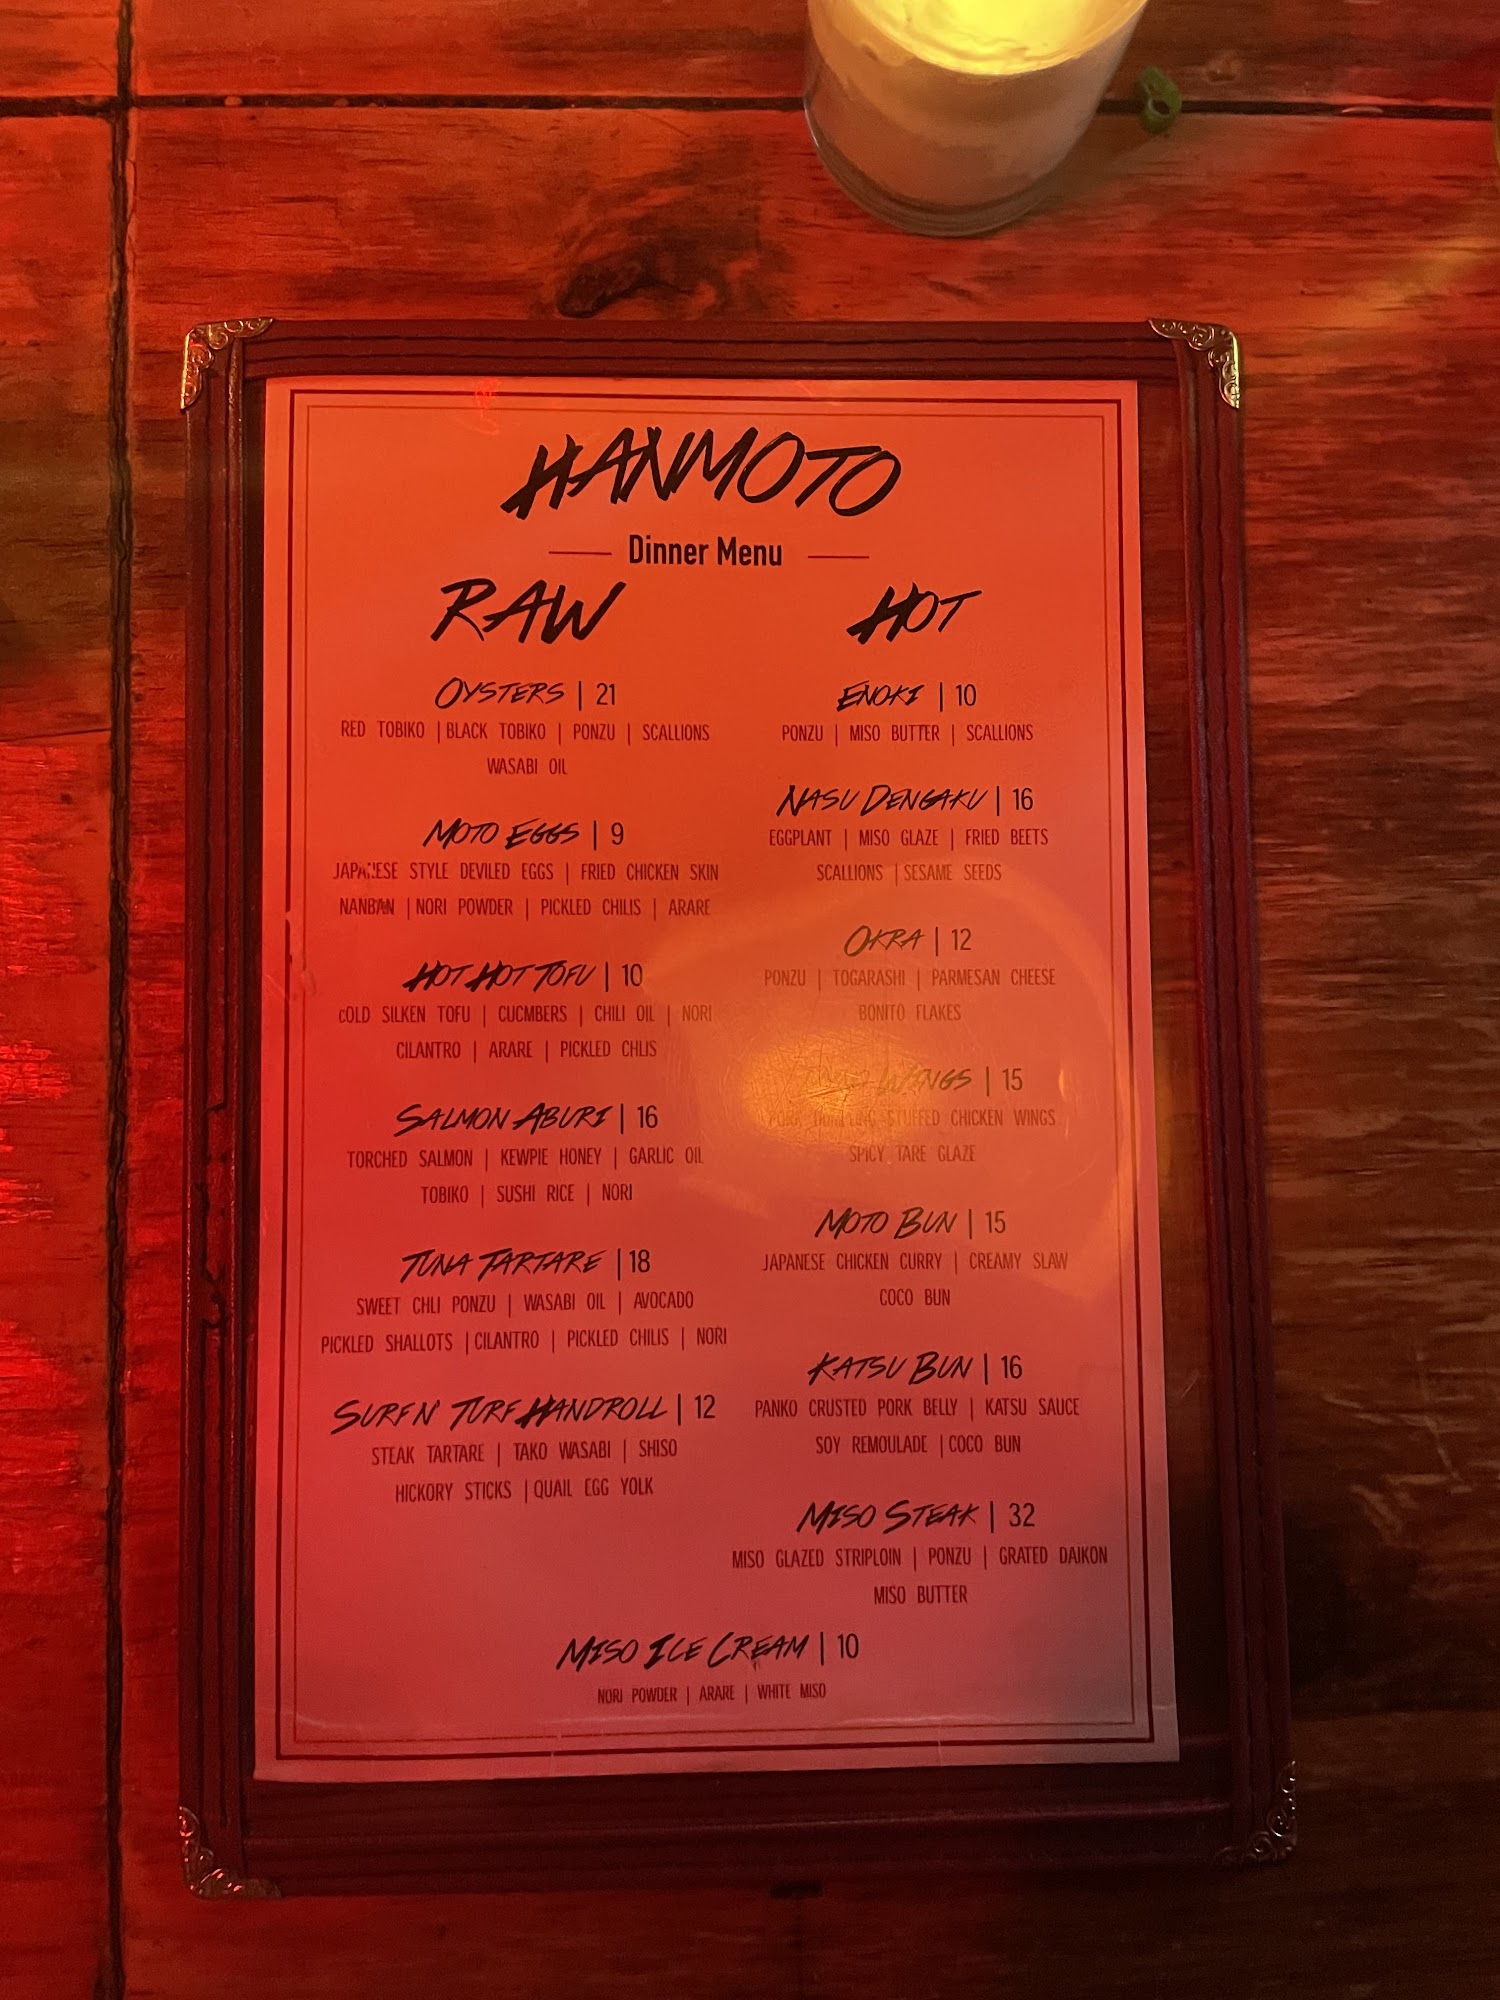 HANMOTO
Dinner Menu
RAW
OYSTERS | 21
RED TOBIKO | BLACK TOBIKO | PONZU | SCALLIONS
WASABI OIL
MOTO EGGS | 9
JAPANESE STYLE DEVILED EGGS | FRIED CHICKEN SKIN
NANBAN | NORI POWDER | PICKLED CHILIS | ARARE
HOT HOT TOFU | 10
COLD SILKEN TOFU | CUCMBERS | CHILI OIL | NORI
CILANTRO | ARARE | PICKLED CHLIS
SALMON ABURI | 16
TORCHED SALMON | KEWPIE HONEY | GARLIC OIL
TOBIKO | SUSHI RICE | NORI
TUNA TARTARE | 18
SWEET CHLI PONZU | WASABI OIL | AVOCADO
PICKLED SHALLOTS | CILANTRO | PICKLED CHILIS | NORI
SURF N' TURF HANDROLL | 12
STEAK TARTARE | TAKO WASABI | SHISO
HICKORY STICKS | QUAIL EGG YOLK
HOT
ENOKI | 10
PONZU | MISO BUTTER | SCALLIONS
NASU DENGAKU | 16
EGGPLANT | MISO GLAZE | FRIED BEETS
SCALLIONS | SESAME SEEDS
OKRA | 12
PONZU | TOGARASHI | PARMESAN CHEESE
BONITO FLAKES
WINGS | 15
PORK DUMPLING STUFFED CHICKEN WINGS
SPICY TARE GLAZE
MOTO BUN | 15
JAPANESE CHICKEN CURRY | CREAMY SLAW
COCO BUN
KATSU BUN | 16
PANKO CRUSTED PORK BELLY | KATSU SAUCE
SOY REMOULADE | COCO BUN
MISO STEAK | 32
MISO GLAZED STRIPLOIN | PONZU | GRATED DAIKON
MISO BUTTER
MISO ICE CREAM | 10
NORI POWDER | ARARE | WHITE MISO